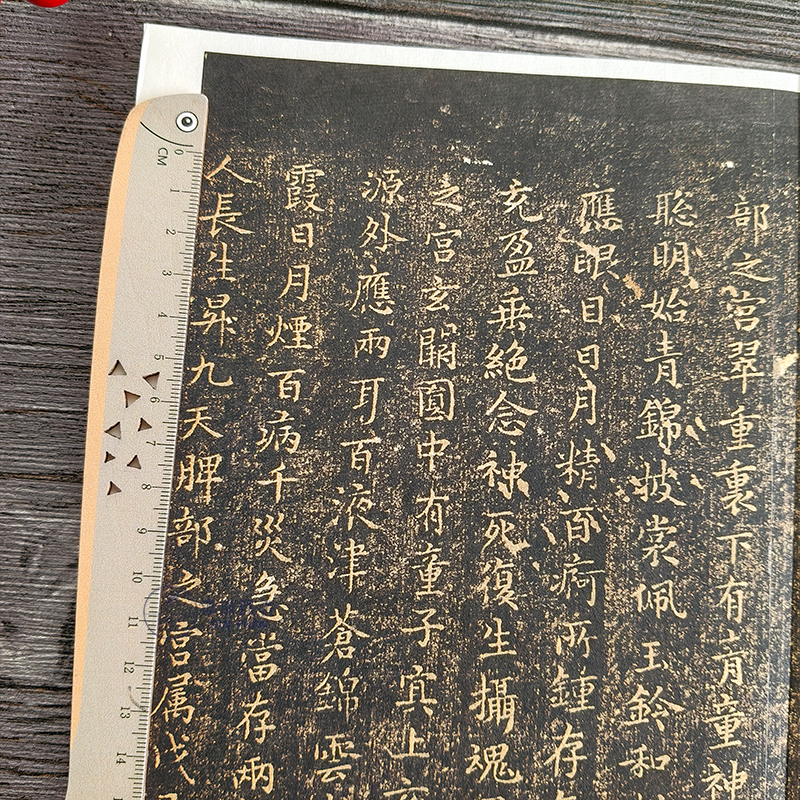 部之宮翠重裏下有青童神
聡明始青錦披裳佩玉鈴和
應眼目日月精百痾所鍾存
充盈垂絕念神死復生攝魂
之宮玄闕圓中有童子冥上玄
源外應兩耳百液津蒼錦雲
霞日月煙百病千災急當存兩
人長生昇九天脾部之宮属戊
CM
0 1 2 3 4 5 6 7 8 9 10 11 12 13 14